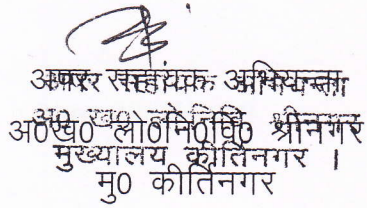 अपर सहायक अभियन्ता
अ०ख० लो०नि०वि० श्रीनगर
मुख्यालय कीर्तिनगर ।
मु० कीर्तिनगर